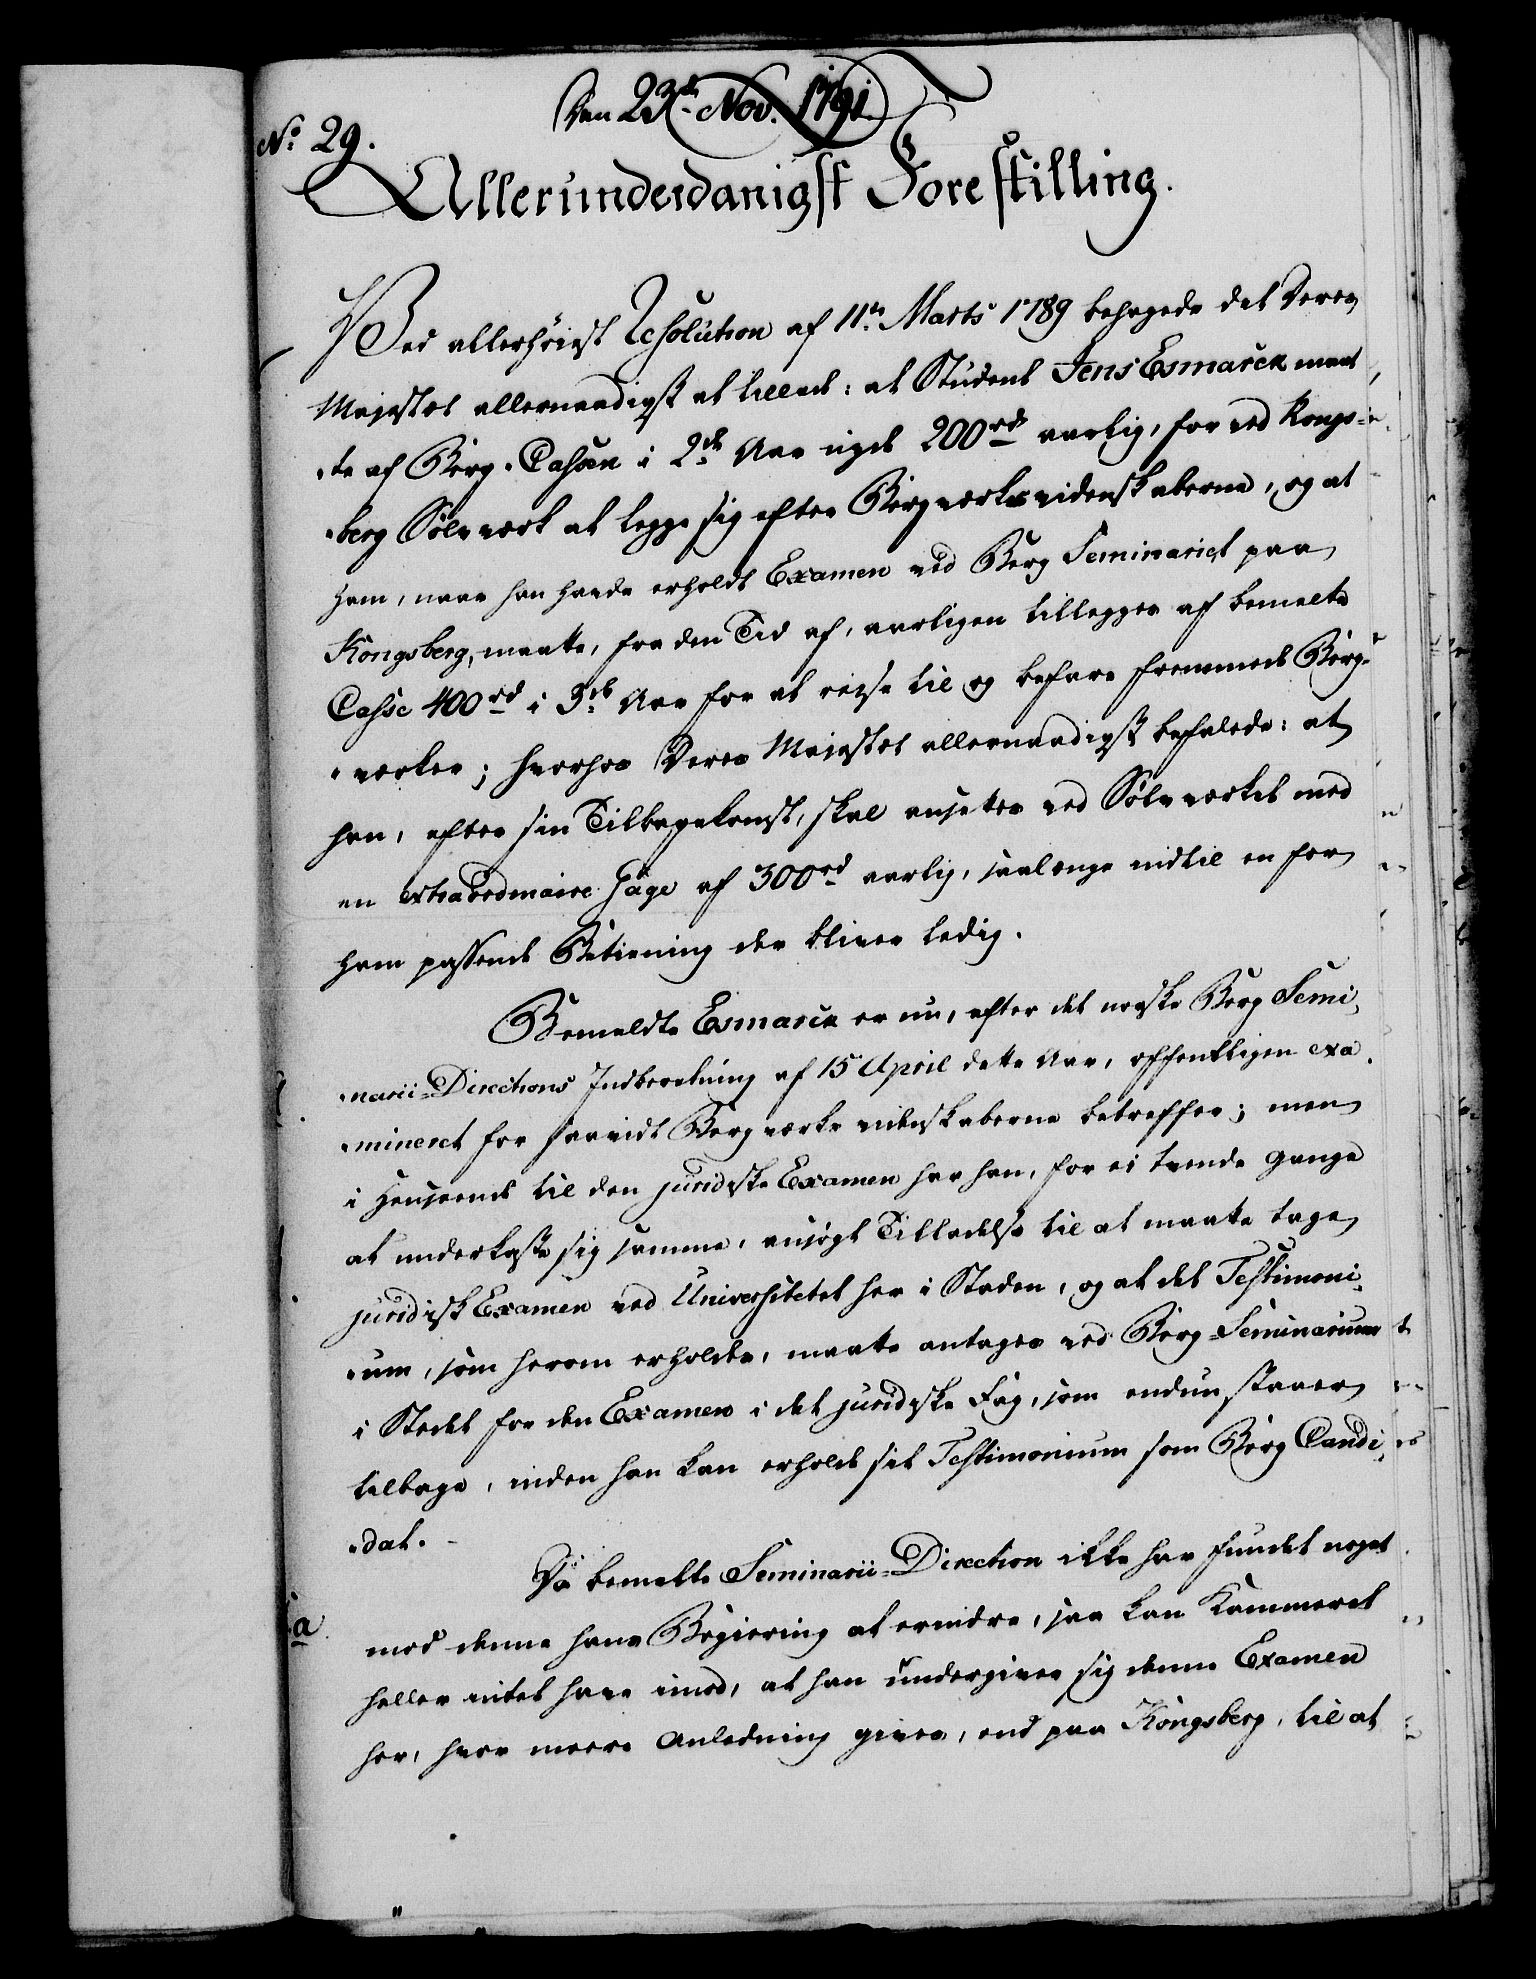 Den 23de Nov. 1791
No 29.
Allerunderdanigst Forestilling.
Ved allerhöiest Resolution af 11te Marts 1789 behagede det Deres
Majestæt allernaadigst at tillade: at Student Jens Esmarck maat
te af Berg-Cassen i 2de Aar nyde 200rd aarlig, for ved Kongs-
berg Sölvværk at legge sig efter Bergverksvidenskaberne, og at
ham, naar han havde erholdt Examen ved Berg Seminariet paa
Kongsberg, maatte, fra den Tid af, aarligen tillegges af bemelte
Casse 400rd i 3de Aar for at reise til og befare fremmede Berg-
verker; hvorhos Deres Majestæt allernaadigst befalede: at
han, efter sin Tilbagekomst, skal ansettes ved Sölvverket med
en extraordinaire Gage af 300rd aarlig, saalænge indtil en for
ham passende Betiening der bliver ledig.
Bemeldte Esmarck er nu, efter det norske Berg Semi-
narii-Directions Indberetning af 15 April dette Aar, offentligen exa-
mineret for saavidt Bergverks videnskaberne betreffer; men
i Henseende til den juridiske Examen har han, for ei tvende Gange
at underkaste sig samme, ansögt Tilladelse til at maatte tage
juridisk Examen ved Universitetet her i Staden, og at det Testimoni-
um, som herom erholdes, maatte antages ved Berg-Seminarium
i Stedet for den Examen i det juridiske Fag, som endnu staaer
tilbage, inden han kan erholde sit Testimonium som Berg Candi-
dat.
Da bemelte Seminarii-Direction ikke har fundet noget
mod denne hans Begiering at erindre, saa kan Kammeret
heller intet have imod, at han undergiver sig denne Examen
her, hvor meere Anledning gives, end paa Kongsberg, til at